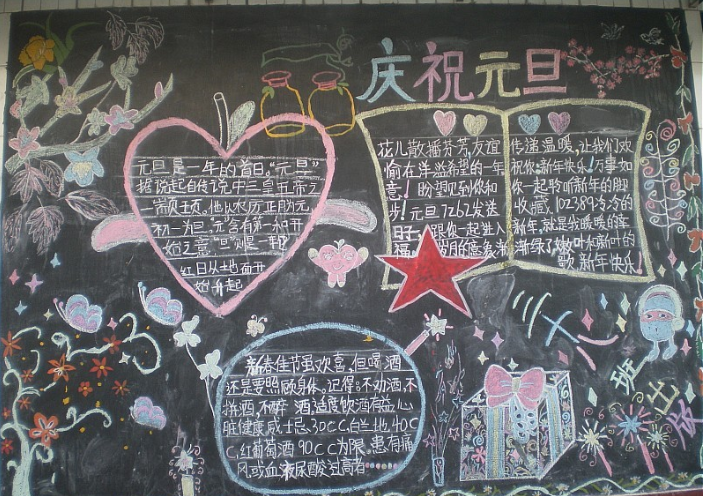 庆祝元旦
元旦是一年的首日。"元旦"
据说起自传说中三皇五帝之
一颛顼。他以农历正月为元,
初一为旦。元含有第一和开
始之意
红日从地面开
始升起
花儿散播芬芳,友谊
愉在洋溢希望的一年
意!盼望见到你和
步!元旦7262发送
旺,跟你一起进入
福。
传递温暖,让我们欢
祝你新年快乐!万事如
你一起聆听新年的脚
收藏,102389冷冷的
新年,就是我暖暖的幸
渐绿了,嫩叶来新叶的
歌,新年快乐!
新春佳节虽欢喜,但喝酒
还是要照顾身体。记得:不劝酒,不
拼酒,不醉酒,适度饮酒有益心
脏健康,威士忌30CC,白兰地40C
C,红葡萄酒90CC为限,患有痛
风或血液尿酸过高者……
班